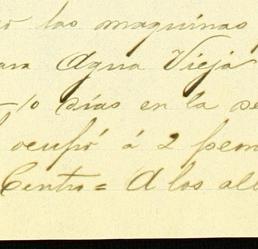 las maquinas
Agua Vieja
10 dias en la se
ocupó á 2 peon
Centro = A los al